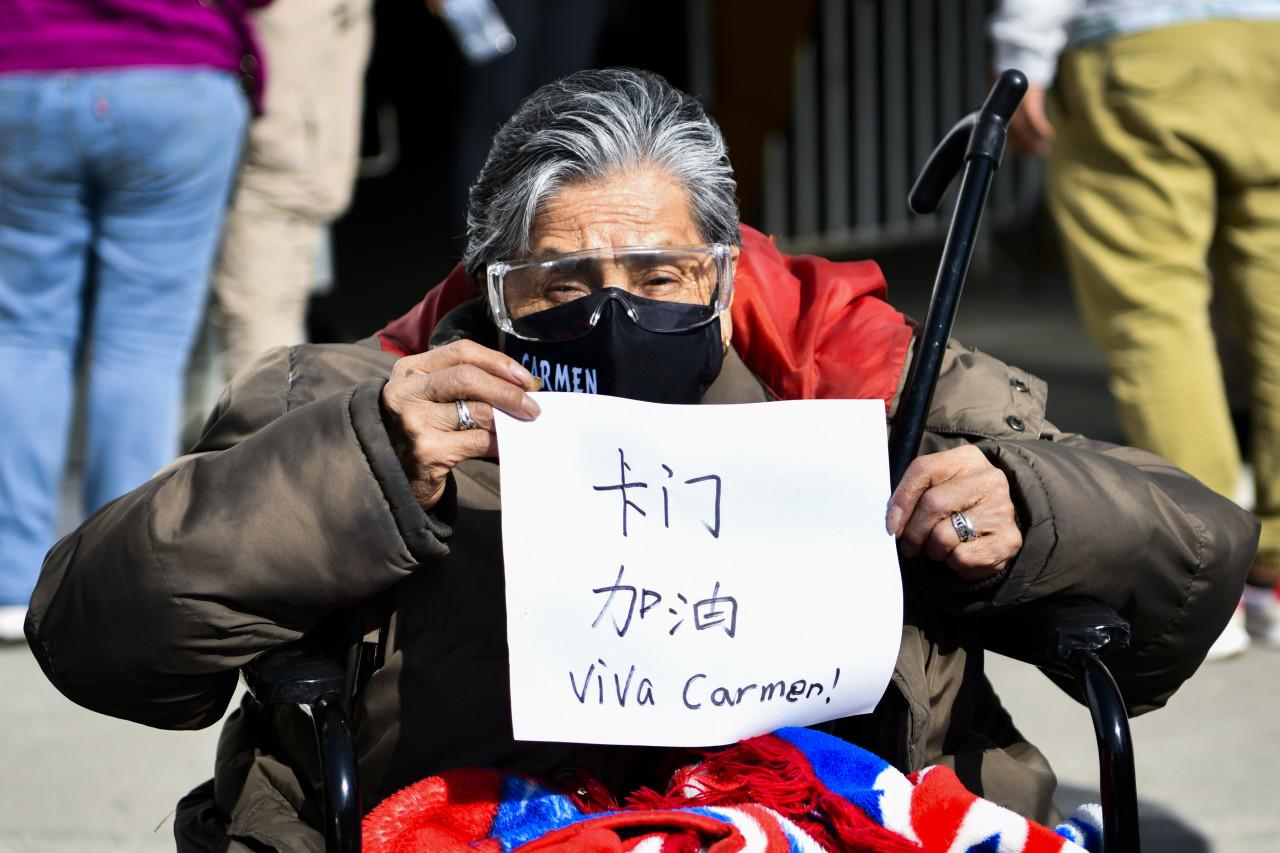 CARMEN
卡门
加油
ViVa Carmen!